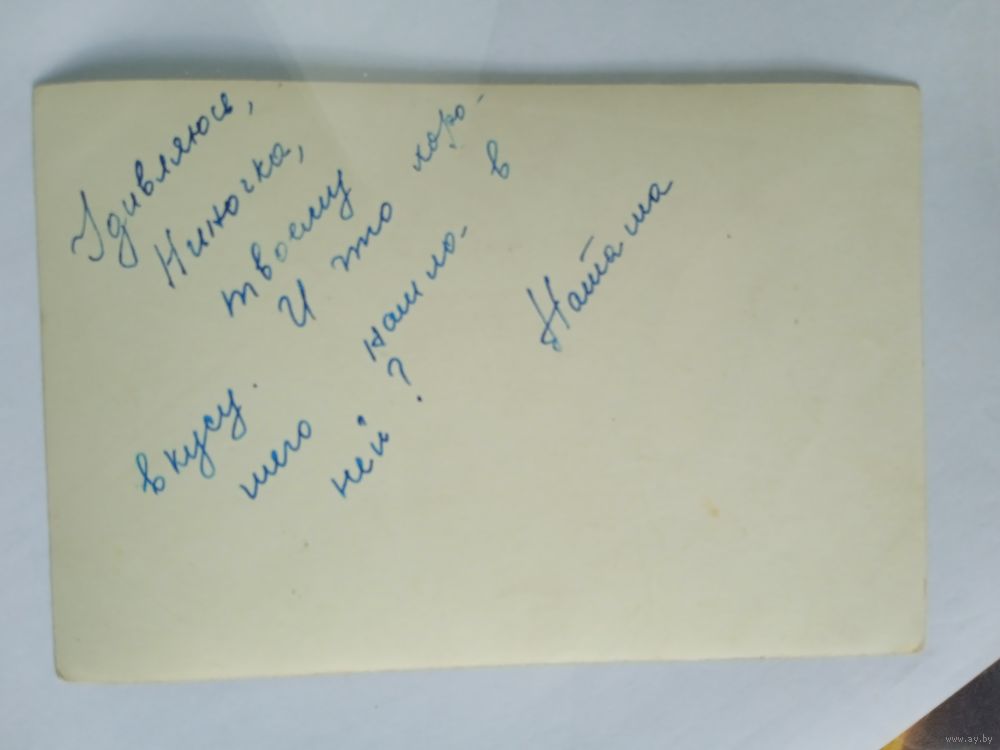 Удивляюсь,
Ниночка,
твоему
вкусу. И что хоро-
шего нашла в
ней?
Наташа
www.ay.by